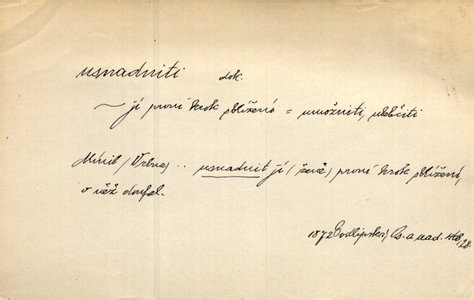 usnadniti dok.
~ jí první krok sblížení = umožniti, ulehčiti
Mínil (Vrbna) .. usnadnit jí (ženě) první krok sblížení,
v něž doufal.
1872 Podlipská,